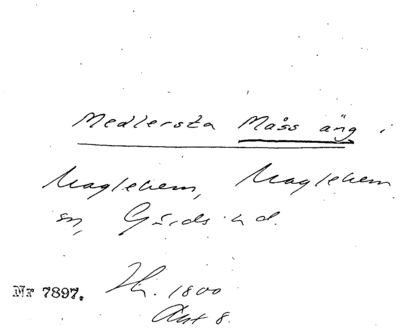 Medlersta Måss äng i
Maglehem, Maglehem
sn, Gärds hd.
Nr 7897. Hi. 1800
Akt 8.